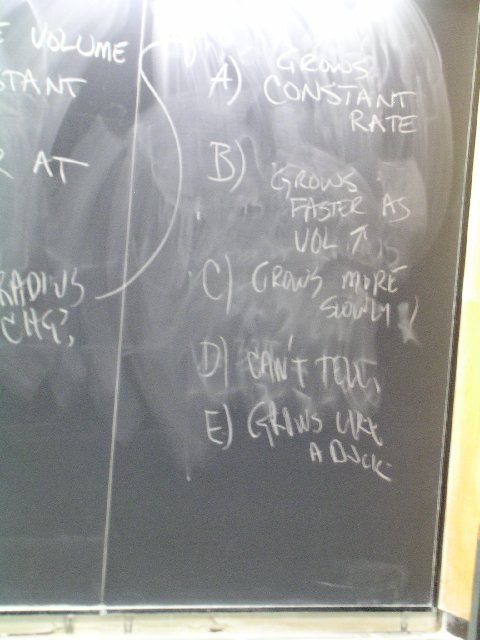 E VOLUME
STANT
R AT
RADIUS
CHG,
A) GROWS
CONSTANT
RATE
B) GROWS
FASTER AS
VOL ↑
C) GROWS MORE
SLOWLY
D) CAN'T TELL,
E) GROWS LIKE
A DUCK